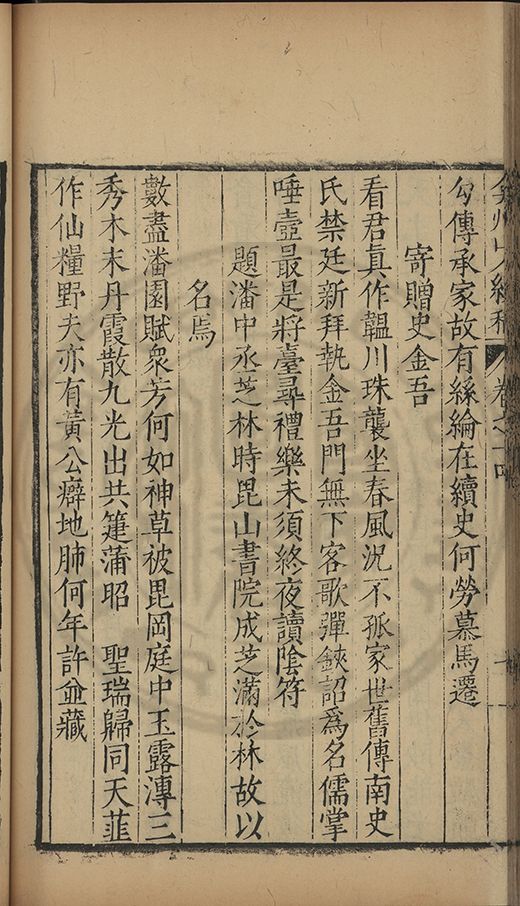 弇州山人續稿 卷之十四
勾傳承家故有絲綸在續史何勞慕馬遷
寄贈史金吾
看君真作韞川珠襲坐春風況不孤家世舊傳南史
氏禁廷新拜執金吾門無下客歌彈鋏詔爲名儒掌
唾壺最是將臺尋禮樂未須終夜讀陰符
題潘中丞芝林時毘山書院成芝滿於林故以
名焉
數盡潘園賦衆芳何如神草被毘岡庭中玉露漙三
秀木末丹霞散九光出共箑蒲昭　聖瑞歸同天韮
作仙糧野夫亦有黃公癖地肺何年許竝藏